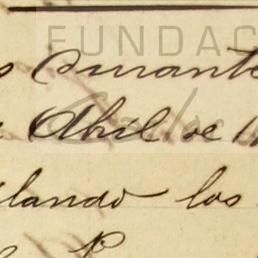 FUNDAC
s durante
Abril de 1
ilando los